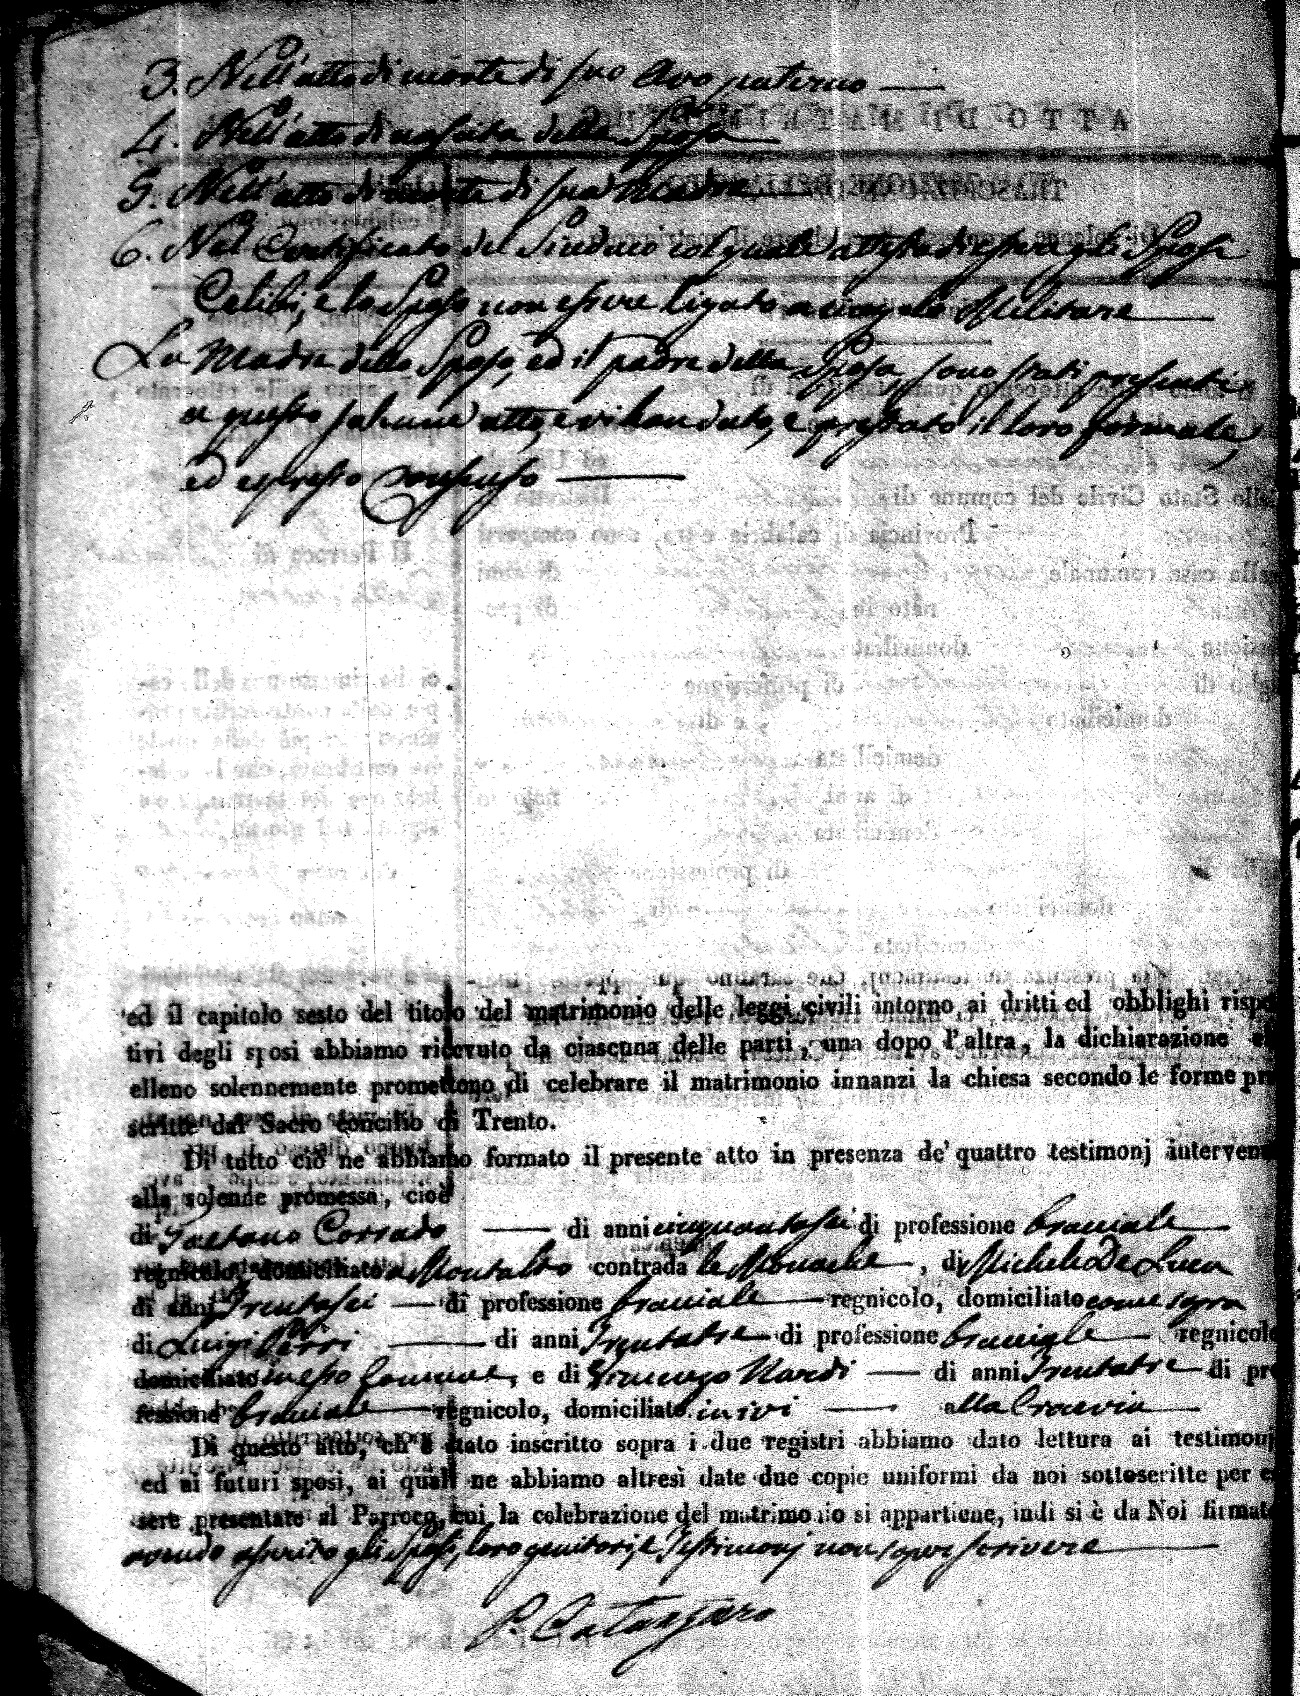 3. Nell'atto di morte di suo Avo paterno
4. Nell'atto di nascita della Sposa
5. Nell'atto di morte di sua Madre
6. Nel Certificato del Sindaco col quale attesta essere gli Sposi
Celibi, e lo Sposo non essere ligato a cingolo Militare
La Madre dello Sposo, ed il padre della Sposa, sono stati presenti
a questo solenne atto, e vi han dato, e prestato il loro formale,
ed espresso Consenso
ed il capitolo sesto del titolo del matrimonio delle leggi civili intorno ai dritti ed obblighi rispe
tivi degli sposi abbiamo ricevuto da ciascuna delle parti, una dopo l'altra, la dichiarazione
elleno solennemente promettono di celebrare il matrimonio innanzi la chiesa secondo le forme pr
scritte dal Sacro concilio di Trento.
Di tutto ciò ne abbiamo formato il presente atto in presenza de' quattro testimonj interven
alla solenne promessa, cioè
di Gaetano Corrado di anni cinquantasei di professione bracciale
regnicolo, domiciliato a Montalto contrada le Monache, di Michele De Luca
di anni Trentasei di professione bracciale regnicolo, domiciliato come sopra
di Luigi Perri di anni Trentatre di professione bracciale regnicolo
domiciliato in esso Comune, e di Vincenzo Nardi di anni Trentatre di pro
fessione bracciale regnicolo, domiciliato in ivi alla
Di questo atto, ch'è stato inscritto sopra i due registri abbiamo dato lettura ai testimonj
ed ai futuri sposi, ai quali ne abbiamo altresì date due copie uniformi da noi sottoscritte per e
sere presentate al Parroco, cui la celebrazione del matrimonio si appartiene, indi si è da Noi firmato
avendo asserito gli Sposi, loro genitori, e Testimonj non saper scrivere